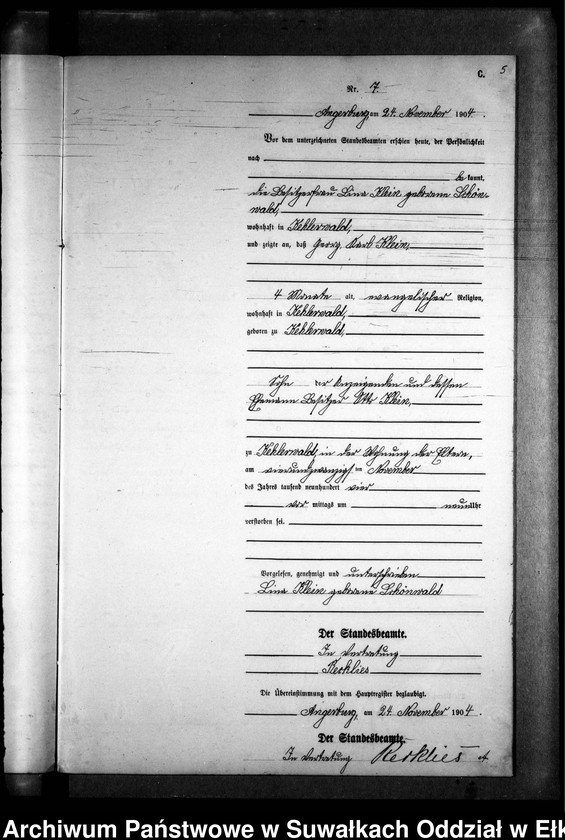 C. 5
Nr. 7.
Angerburg am 24. November 1904.
Vor dem unterzeichneten Standesbeamten erschien heute, der Persönlichkeit
nach
bekannt,
die Besitzerfrau Lina Klein geborene Schön-
wald,
wohnhaft in Kehlerwald,
und zeigte an, daß Georg Karl Klein,
4 Monate alt, evangelischer Religion,
wohnhaft in Kehlerwald,
geboren zu Kehlerwald,
Sohn der Anzeigenden und dessen
Ehemann Besitzer Otto Klein,
zu Kehlerwald, in der Wohnung der Eltern,
am vierundzwanzigsten November
des Jahres tausend neunhundert vier
vor mittags um neun Uhr
verstorben sei.
Vorgelesen, genehmigt und unterschrieben
Lina Klein geborene Schönwald
Der Standesbeamte.
In Vertretung
Kerklies
Die Übereinstimmung mit dem Hauptregister beglaubigt.
Angerburg, am 24. November 1904.
Der Standesbeamte.
In Vertretung Kerklies
Archiwum Państwowe w Suwałkach Oddział w Ełk